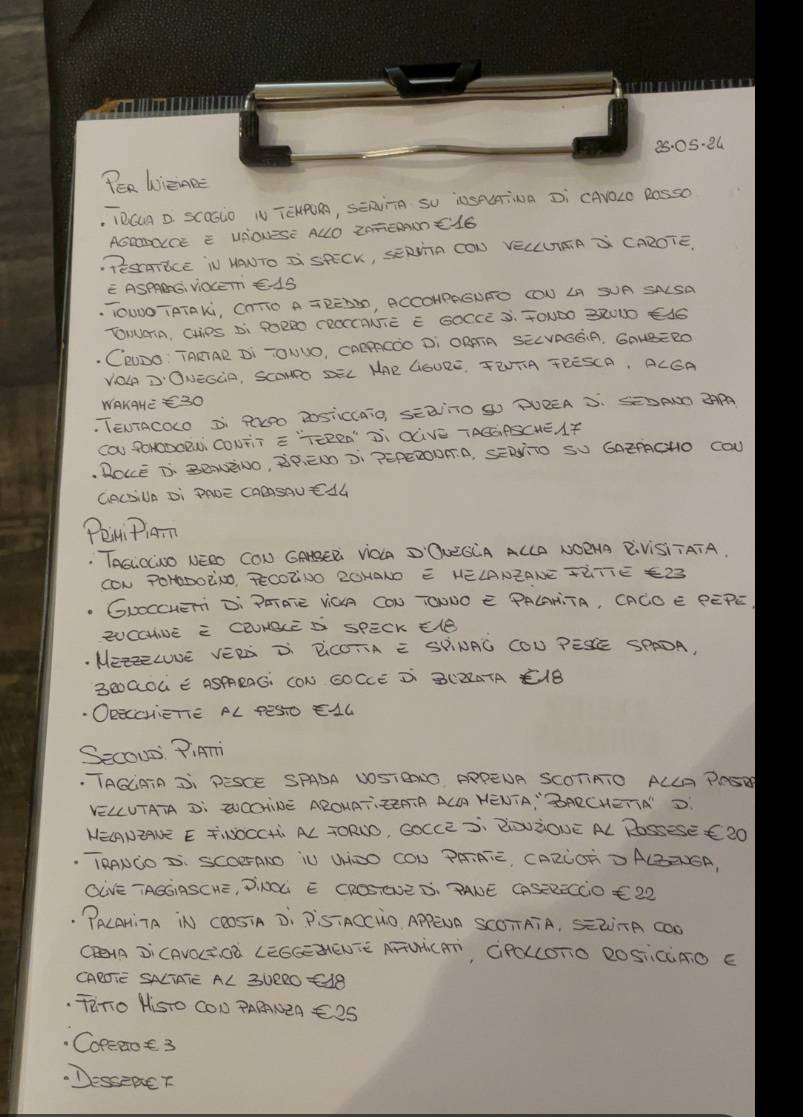 25.05.24
PER INIZIARE
• TRIGLIA DI SCOGLIO IN TEMPURA, SERVITA SU INSALATINA DI CAVOLO ROSSO
AGRODOLCE E MAIONESE ALLO ZAFFERANO €16
• PESCATRICE IN MANTO DI SPECK, SERVITA CON VELLUTATA DI CAROTE,
E ASPARAGI VIOLETTI €15
• TONNO TATAKI, COTTO A FREDDO, ACCOMPAGNATO CON LA SUA SALSA
TONNATA, CHIPS DI PORRO CROCCANTE E GOCCE DI FONDO BRUNO €16
• CRUDO: TARTAR DI TONNO, CARPACCIO DI ORATA SELVAGGIA, GAMBERO
VIOLA D'ONEGLIA, SCAMPO DEL MAR LIGURE, FRUTTA FRESCA, ALGA
WAKAME €30
• TENTACOLO DI POLPO ROSTICCIATO, SERVITO SU PUREA DI SEDANO RAPA
CON POMODORINI CONFIT E "TERRA" DI OLIVE TAGGIASCHE 17
• ROLLÈ DI BRANZINO, RIPIENO DI PEPERONATA, SERVITO SU GAZPACHO CON
CIALDINA DI PANE CARASAU €14
PRIMI PIATTI
• TAGLIOLINO NERO CON GAMBERI VIOLA D'ONEGLIA ALLA NORMA RIVISITATA,
CON POMODORINO, PECORINO ROMANO E MELANZANE FRITTE €23
• GNOCCHETTI DI PATATE VIOLA CON TONNO E PALAMITA, CACIO E PEPE,
ZUCCHINE E CRUMBLE DI SPECK €18
• MEZZELUNE VERDI DI RICOTTA E SPINACI CON PESCE SPADA,
BROCCOLI E ASPARAGI CON GOCCE DI BURRATA €18
• ORECCHIETTE AL PESTO €14
SECONDI PIATTI
• TAGLIATA DI PESCE SPADA NOSTRANO, APPENA SCOTTATO ALLA PIASTRA
VELLUTATA DI ZUCCHINE AROMATIZZATA ALLA MENTA, "BARCHETTA" DI
MELANZANE E FINOCCHI AL FORNO, GOCCE DI RIDUZIONE AL ROSSESE €20
• TRANCIO DI SCORFANO IN UMIDO CON PATATE, CARCIOFI D'ALBENGA,
OLIVE TAGGIASCHE, PINOLI E CROSTONE DI PANE CASERECCIO €22
• PALAMITA IN CROSTA DI PISTACCHIO APPENA SCOTTATA, SERVITA CON
CREMA DI CAVOLFIORI LEGGERMENTE AFFUMICATI, CIPOLLOTTO ROSTICCIATO E
CAROTE SALTATE AL BURRO €18
• FRITTO MISTO CON PARANZA €25
• COPERTO € 3
• DESSERT € 7